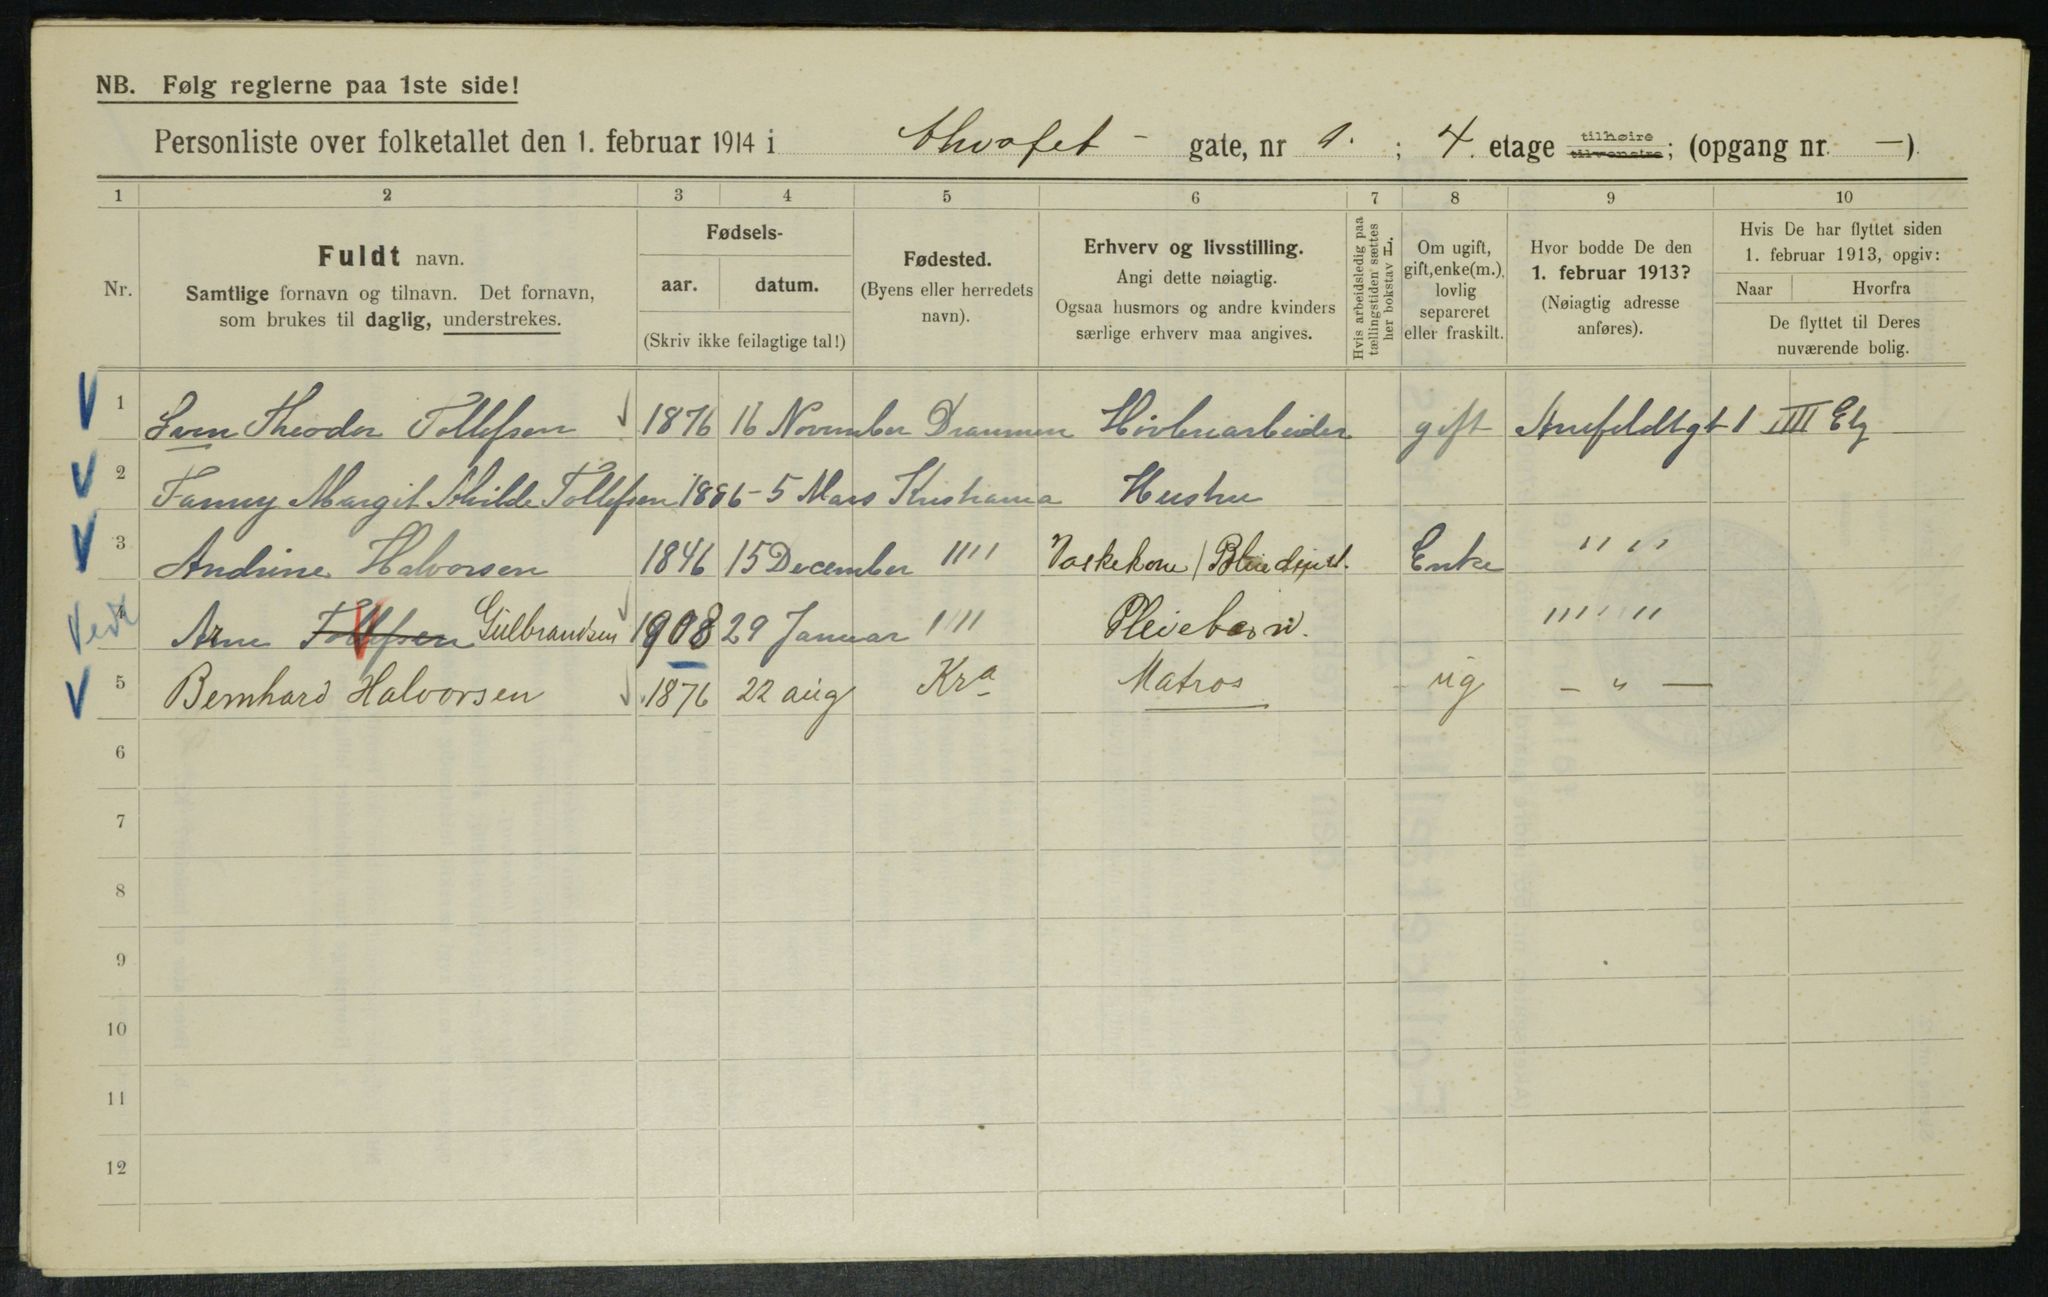 NB. Følg reglerne paa 1ste side!
Personliste over folketallet den 1. februar 1914 i - gate, nr 1. ; 4. etage tilhøire tilvenstre; (opgang nr. —).
1 2 3 4 5 6 7 8 9 10
Nr.
Fuldt navn.
Samtlige fornavn og tilnavn. Det fornavn,
som brukes til daglig, understrekes.
Fødsels-
aar. datum.
(Skriv ikke feilagtige tal!)
Fødested.
(Byens eller herredets
navn).
Erhverv og livsstilling.
Angi dette nøiagtig.
Ogsaa husmors og andre kvinders
særlige erhverv maa angives.
Hvis arbeidsledig paa
tællingstiden sættes
her bokstav L.
Om ugift,
gift, enke(m.),
lovlig
separeret
eller fraskilt.
Hvor bodde De den
1. februar 1913?
(Nøiagtig adresse
anføres).
Hvis De har flyttet siden
1. februar 1913, opgiv:
Naar Hvorfra
De flyttet til Deres
nuværende bolig.
1 Sven Theodor Tollefsen 1876 16 November Drammen Høvleriarbeider gift 1 IIII Etg
2 Fanny Margit Tollefsen 1886 - 5 Mars Kristiania Hustru
3 Andrine Halvorsen 1846 15 December "" Vaskekone / Enke " "
4 Arne Tollefsen Gulbrandsen 1908 29 Januar "" Pleiebarn. "" " "
5 Bernhard Halvorsen 1876 22 aug Kra Matros ug - " -
6
7
8
9
10
11
12